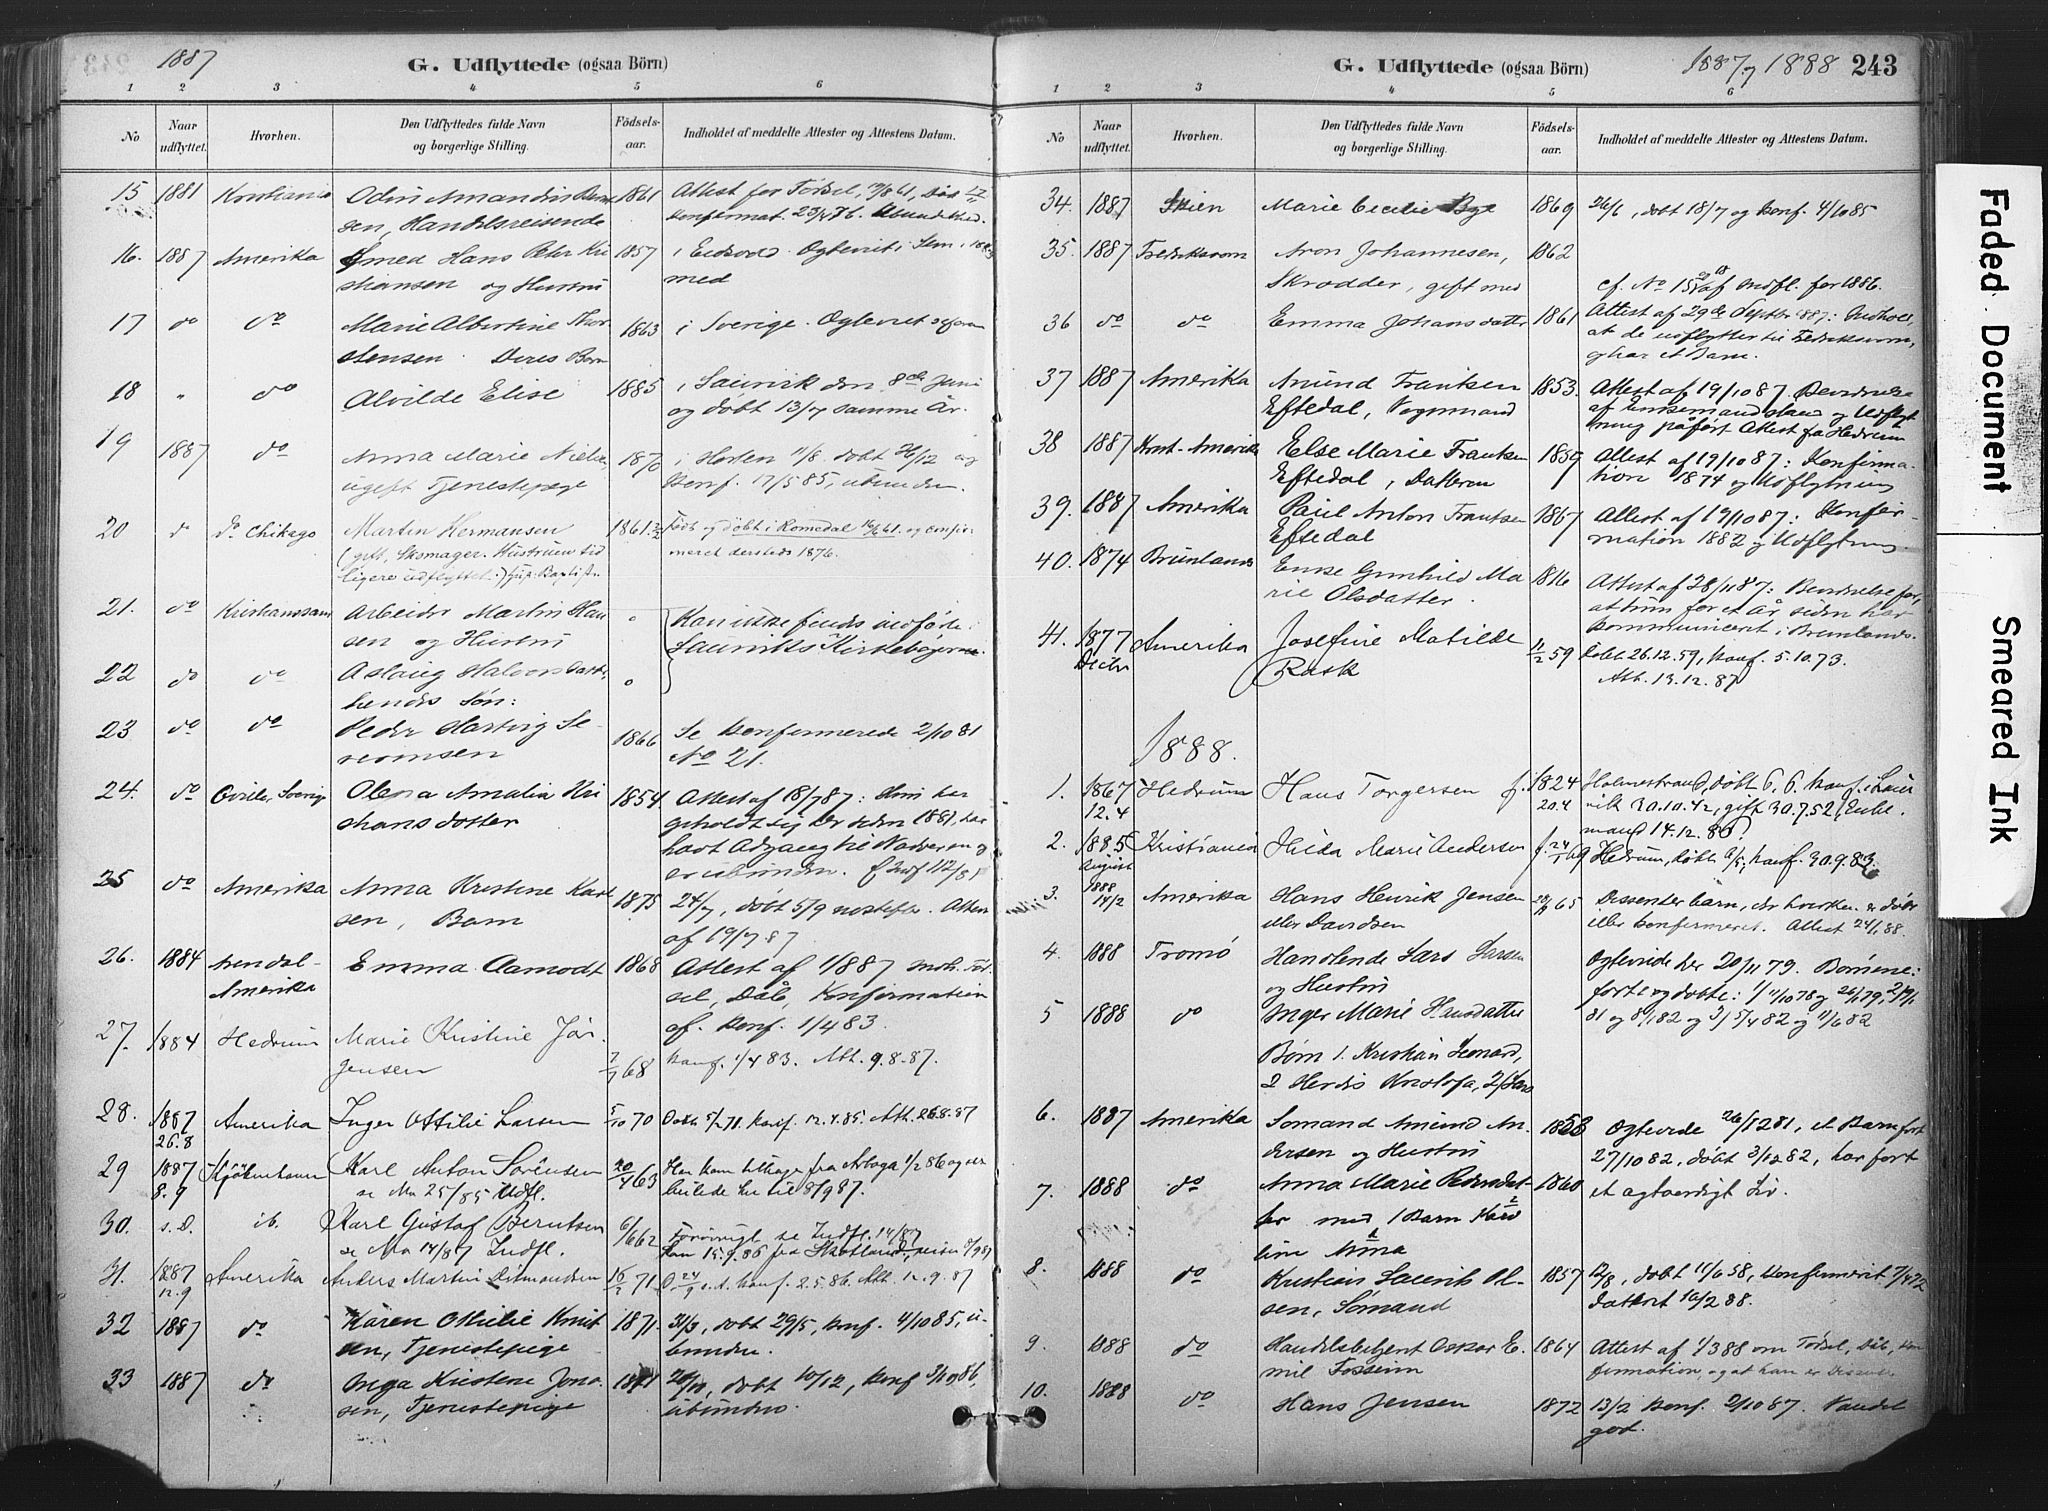 1887
G. Udflyttede (ogsaa Börn)
1 2 3 4 5 6
No
Naar udflyttet.
Hvorhen.
Den Udflyttedes fulde Navn og borgerlige Stilling.
Födsels-aar.
Indholdet af meddelte Attester og Attestens Datum.
15 1881 Kristiania Odin Amandus 1861 Attest for Fødsel, Dåb
sen, Handelsreisende konfirmat.
16. 1887 Amerika Smed Hans Peter Kri 1857 i Eidsvold. Ogteviet i Sem
stiansen og Hustru med
17 do do Marie Albertine Thor 1863 i Sverige. Ogteviet
stensen Deres Barn
18 " do Alvilde Elise 1885 i Laurvik den 8de Juni
og døbt 13/7 samme År.
19 1887 do Anna Marie Niels 1870 i Horten 11/8 døbt 26/12 og
ugift Tjenestepige Konf. 17/5 85, ubunden.
20 do Chikago Martin Hermansen 1861 Født og døbt i Romedal og confir
(gift, Skomager. Hustruen tid meret dersteds 1876.
ligere udflyttet.)
21. do Kristianssand Arbeider Martin Han " Kan ikke findes indførte i
sen og Hustru Laurviks Kirkebøgerne.
22 do do Aslaug Halvorsdatter "
hendes Søn:
23 do do Peder Hartvig Se 1866 Se Konfirmerede 2/10 81
verinsen No 21.
24. do Sverig Olava Amalia Kri 1854 Attest af 18/7 87: Hun har
stiansdotter opholdt sig her siden 1881, har
havt Adgang til Nadveren og
er ubunden.
25 do Amerika Anna Kristine Karl 1875 24/7, døbt 5/9 næstefter. Attest
sen, Barn af 19/7 87
26. 1884 Arendal- Emma Aamodt 1868 Attest af 1/8 87 Fød
Amerika sel, Dåb, Konfirmation
af. konf. 1/4 83.
27. 1884 Hedrum Marie Kristine Jør 7/7 68 konf. 1/4 83. Att. 9.8.87.
gensen
28. 1887 Amerika Inger Ottilie Larsen 5/10 70 Døbt 5/2 71. konf. 12.4.85. Att. 26.8.87
26.8
29 1887 Kjøbenhavn Karl Anton Sørensen 20/4 63 Har kom tilbage fra Arboga 1/2 86 og
8.9 se No 25/85 Udfl. her til 8/9 87.
30. s.D. ib. Karl Gustaf Berntsen 6/6 62 Forøvrigt se Indfl. 14/87
se No 14/87 Indfl. kom 15.9.86 fra Skotland,
31. 1887 Amerika Anders Martin Ditmandsen 16/2 71 konf. 2.5.86. Att. 12.9.87
12.9
32 1887 do Karen Othilie Knut 1871. 31/3, døbt 29/5, konf. 4/10 85, u-
sen, Tjenestepige bunden.
33 1887 do Inga Kristene Jona 1871 døbt 10/12, konf 3/10 86,
sen, Tjenestepige ubunden.
1887 og 1888 243
G. Udflyttede (ogsaa Börn)
1 2 3 4 5 6
No
Naar udflyttet.
Hvorhen.
Den Udflyttedes fulde Navn og borgerlige Stilling.
Födsels-aar.
Indholdet af meddelte Attester og Attestens Datum.
34. 1887 Skien Marie Cecilie Bye 1869 26/6, døbt 18/7 og konf. 4/10 85
35. 1887 Fredriksværn Aron Johannesen, 1862
Skrædder, gift med cf. No 15 af Indfl. for 1886.
36 do do Emma Johansdatter 1861 Attest af 29de Septbr 1887: Indhold,
at de udflytter til Fredriksværn,
og har et Barn.
37 1887 Amerika Amund Frantsen 1853. Attest af 19/10 87.
Eftedal, Vognmand og Udflyt
ning påført Attest fra Hedrum
38 1887 Nord-Amerika Else Marie Frantsen 1859 Attest af 19/10 87: Konfirma-
Eftedal, Datteren tion 1874 og Udflytning
39. 1887 Amerika Paul Anton Frantsen 1867 Attest af 19/10 87: Konfir-
Eftedal mation 1882 og Udflytning
40. 1874 Brunlanes Enke Gunhild Ma 1816 Attest af 28/11 87: Bevidnelse for,
rie Olsdatter. at hun for et År siden har
kommuniceret i Brunlanes.
41. 1877 Amerika Josefine Matilde 11/2 59 Døbt 26.12.59, konf. 5.10.73.
Decbr Rask Att. 13.12.87
1888.
1. 1867 Hedrum Hans Torgersen f. 1824 Holmestrand, døbt 6.6. konf. i Laur
12.4 20.4 vik 30.10.42, gift 30.7.52, Enke
mand 14.12.80.
2. 1885 Kristiania Hilda Marie Andersen f. 24/1 69 Hedrum, døbt konf. 30.9.83.
August
3. 1888 Amerika Hans Henrik Jensen 65 Dissenterbarn, der hverken er døbt
14/2 eller Davidsen eller konfirmeret. Attest 24/1 88.
4 1888 Tromø Handlende Lars Larsen Ogteviede her 20/11 79. Børnene:
og Hustru fødte og døbte: 1/ 11/10 78 og 26/1 79, 2/
5 1888 do Inger Marie Hansdatter 81 og 8/1 82 og 3/ 5/4 82 og 11/6 82
Børn 1. Kristian Leonard,
2 Herdis Kristofa, 3/ Lars
6. 1887 Amerika Sømand Amund An 1858 Ogteviede 26/12 81, et Barn født
dersen og Hustru 27/10 82, døbt 3/12 82, har ført
7. 1888 do Anna Marie Pedersdat- 1860 et agtværdigt Liv.
ter med 1 Barn Karo
line Anna
8. 1888 do Kristian Laurits Ol- 1857 12/8, døbt 11/6 58, Konfirmeret 7/4 72
sen, Sømand Datteret 10/2 88.
9 1888 do Handelsbetjent Oskar E. 1864 Attest af 1/3 88 om Fødsel, Dåb, Kon
mil Fossum firmation, og at han er Dissenter
10. 1888 do Hans Jensen 1872 13/2 konf. 2/10 87. Vandel
god.
Faded Document
Smeared Ink